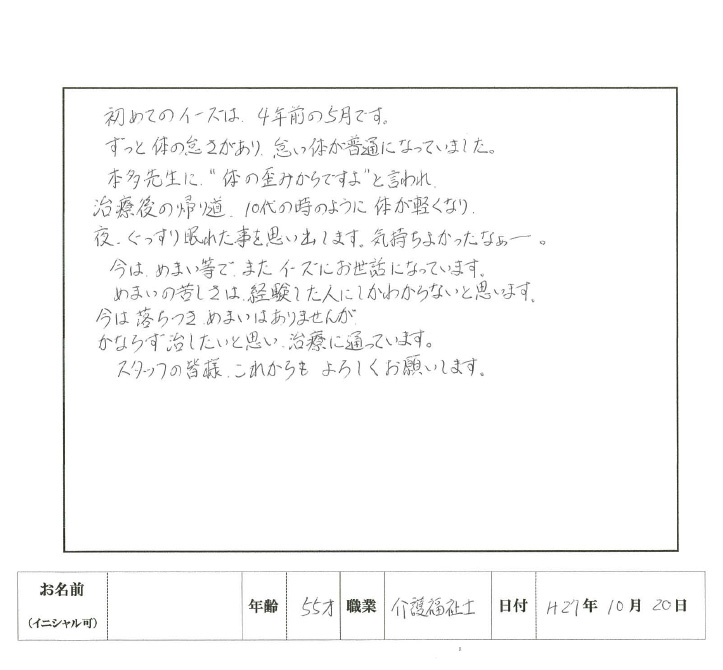 初めてのイーズは、4年前の5月です。
ずっと体の怠さがあり、怠い体が普通になっていました。
本多先生に、"体の歪みからですよ"と言われ、
治療後の帰り道、10代の時のように体が軽くなり、
夜、ぐっすり眠れた事を思い出します。気持ちよかったなぁー。
今は、めまい等で、またイーズにお世話になっています。
めまいの苦しさは、経験した人にしかわからないと思います。
今は落ちつき、めまいはありませんが、
かならず治したいと思い、治療に通っています。
スタッフの皆様、これからもよろしくお願いします。
お名前
(イニシャル可)
年齢 55才 職業 介護福祉士 日付 H27年10月20日